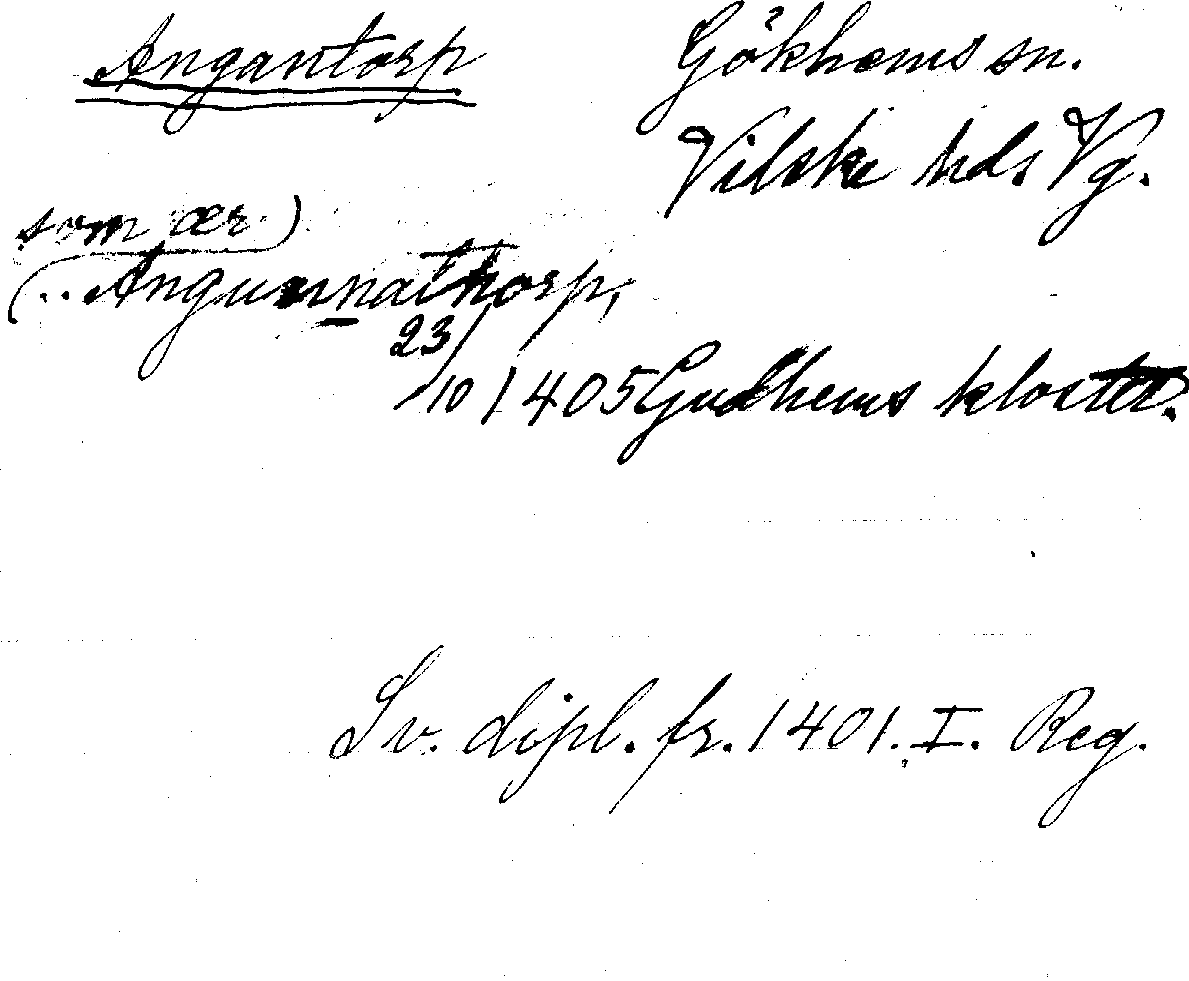 Angantorp Gökhems sn.
Vilske hd. Vg.
som ær)
(.. Angunnathorp,
23/10 1405 Gudhems kloster.
Sv. dipl. fr. 1401. I. Reg.